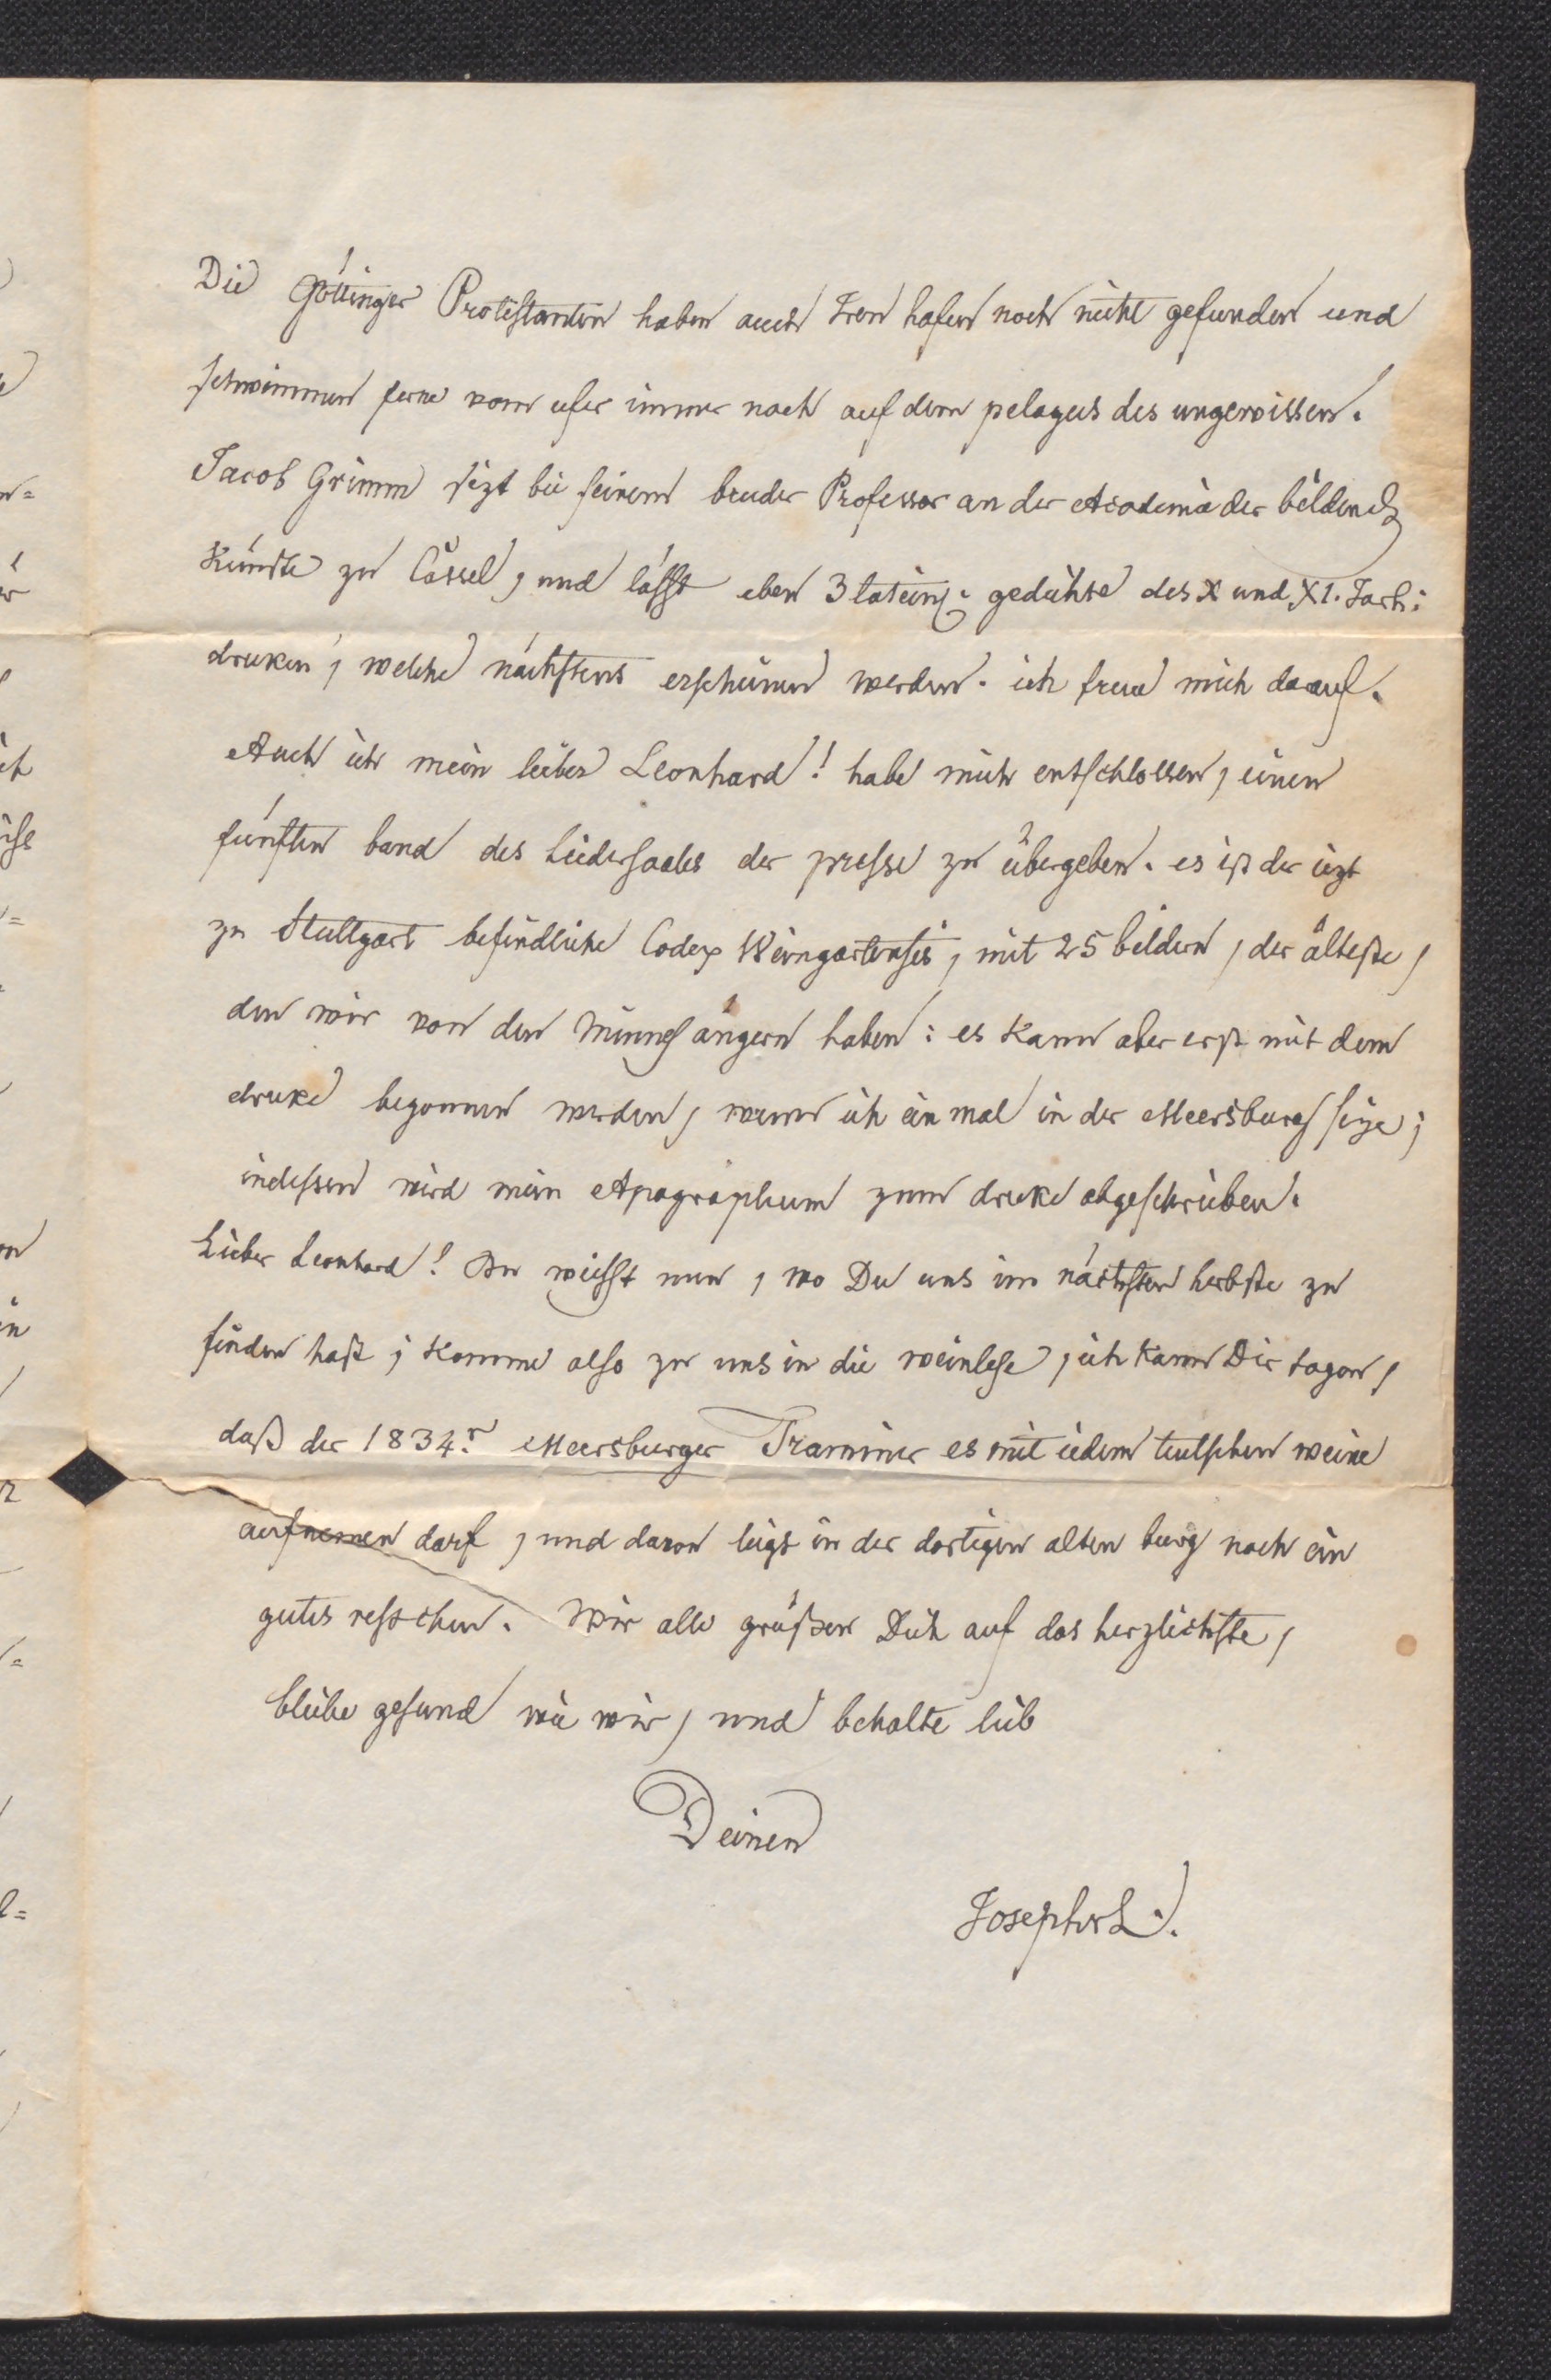 Die Göttinger Protestanten haben auch Iren hafen noch nicht gefunden und
schwimmen ferne vom ufer immer noch auf dem pelagus des ungewissen.
Jacob Grimm sizt bei seinem bruder Professor an der Academie der bildend
Künste zu Cassel, und lässt eben 3 latein: gedichte des X und XI. Jarh:
druken, welche nächstens erscheinen werden. ich freue mich darauf.
Auch ich mein lieber Leonhard! habe mich entschlossen, einen
fünften band des Liedersaales der presse zu übergeben. es ist der iezt
zu Stuttgart befindliche Codex Weingartensis, mit 25 bildern, der älteste,
den wir von den Minnesängern haben: es kann aber erst mit dem
druke begonnen werden, wenn ich ein mal in der Meersburg size;
indessen wird mein Apographum zum druke abgeschrieben.
Lieber Leonhard! Du weisst nun, wo Du uns im nächsten herbste zu
finden hast; komme also zu uns in die weinlese, ich kann Dir sagen,
daß der 1834.r Meersburger Traminer es mit iedem teutschen weine
aufnemen darf, und davon ligt in der dortigen alten burg noch ein
gutes restchen. Wir alle grüßen Dich auf das herzlichste,
bleibe gesund wie wir, und behalte lieb
Deinen
Joseph v L.